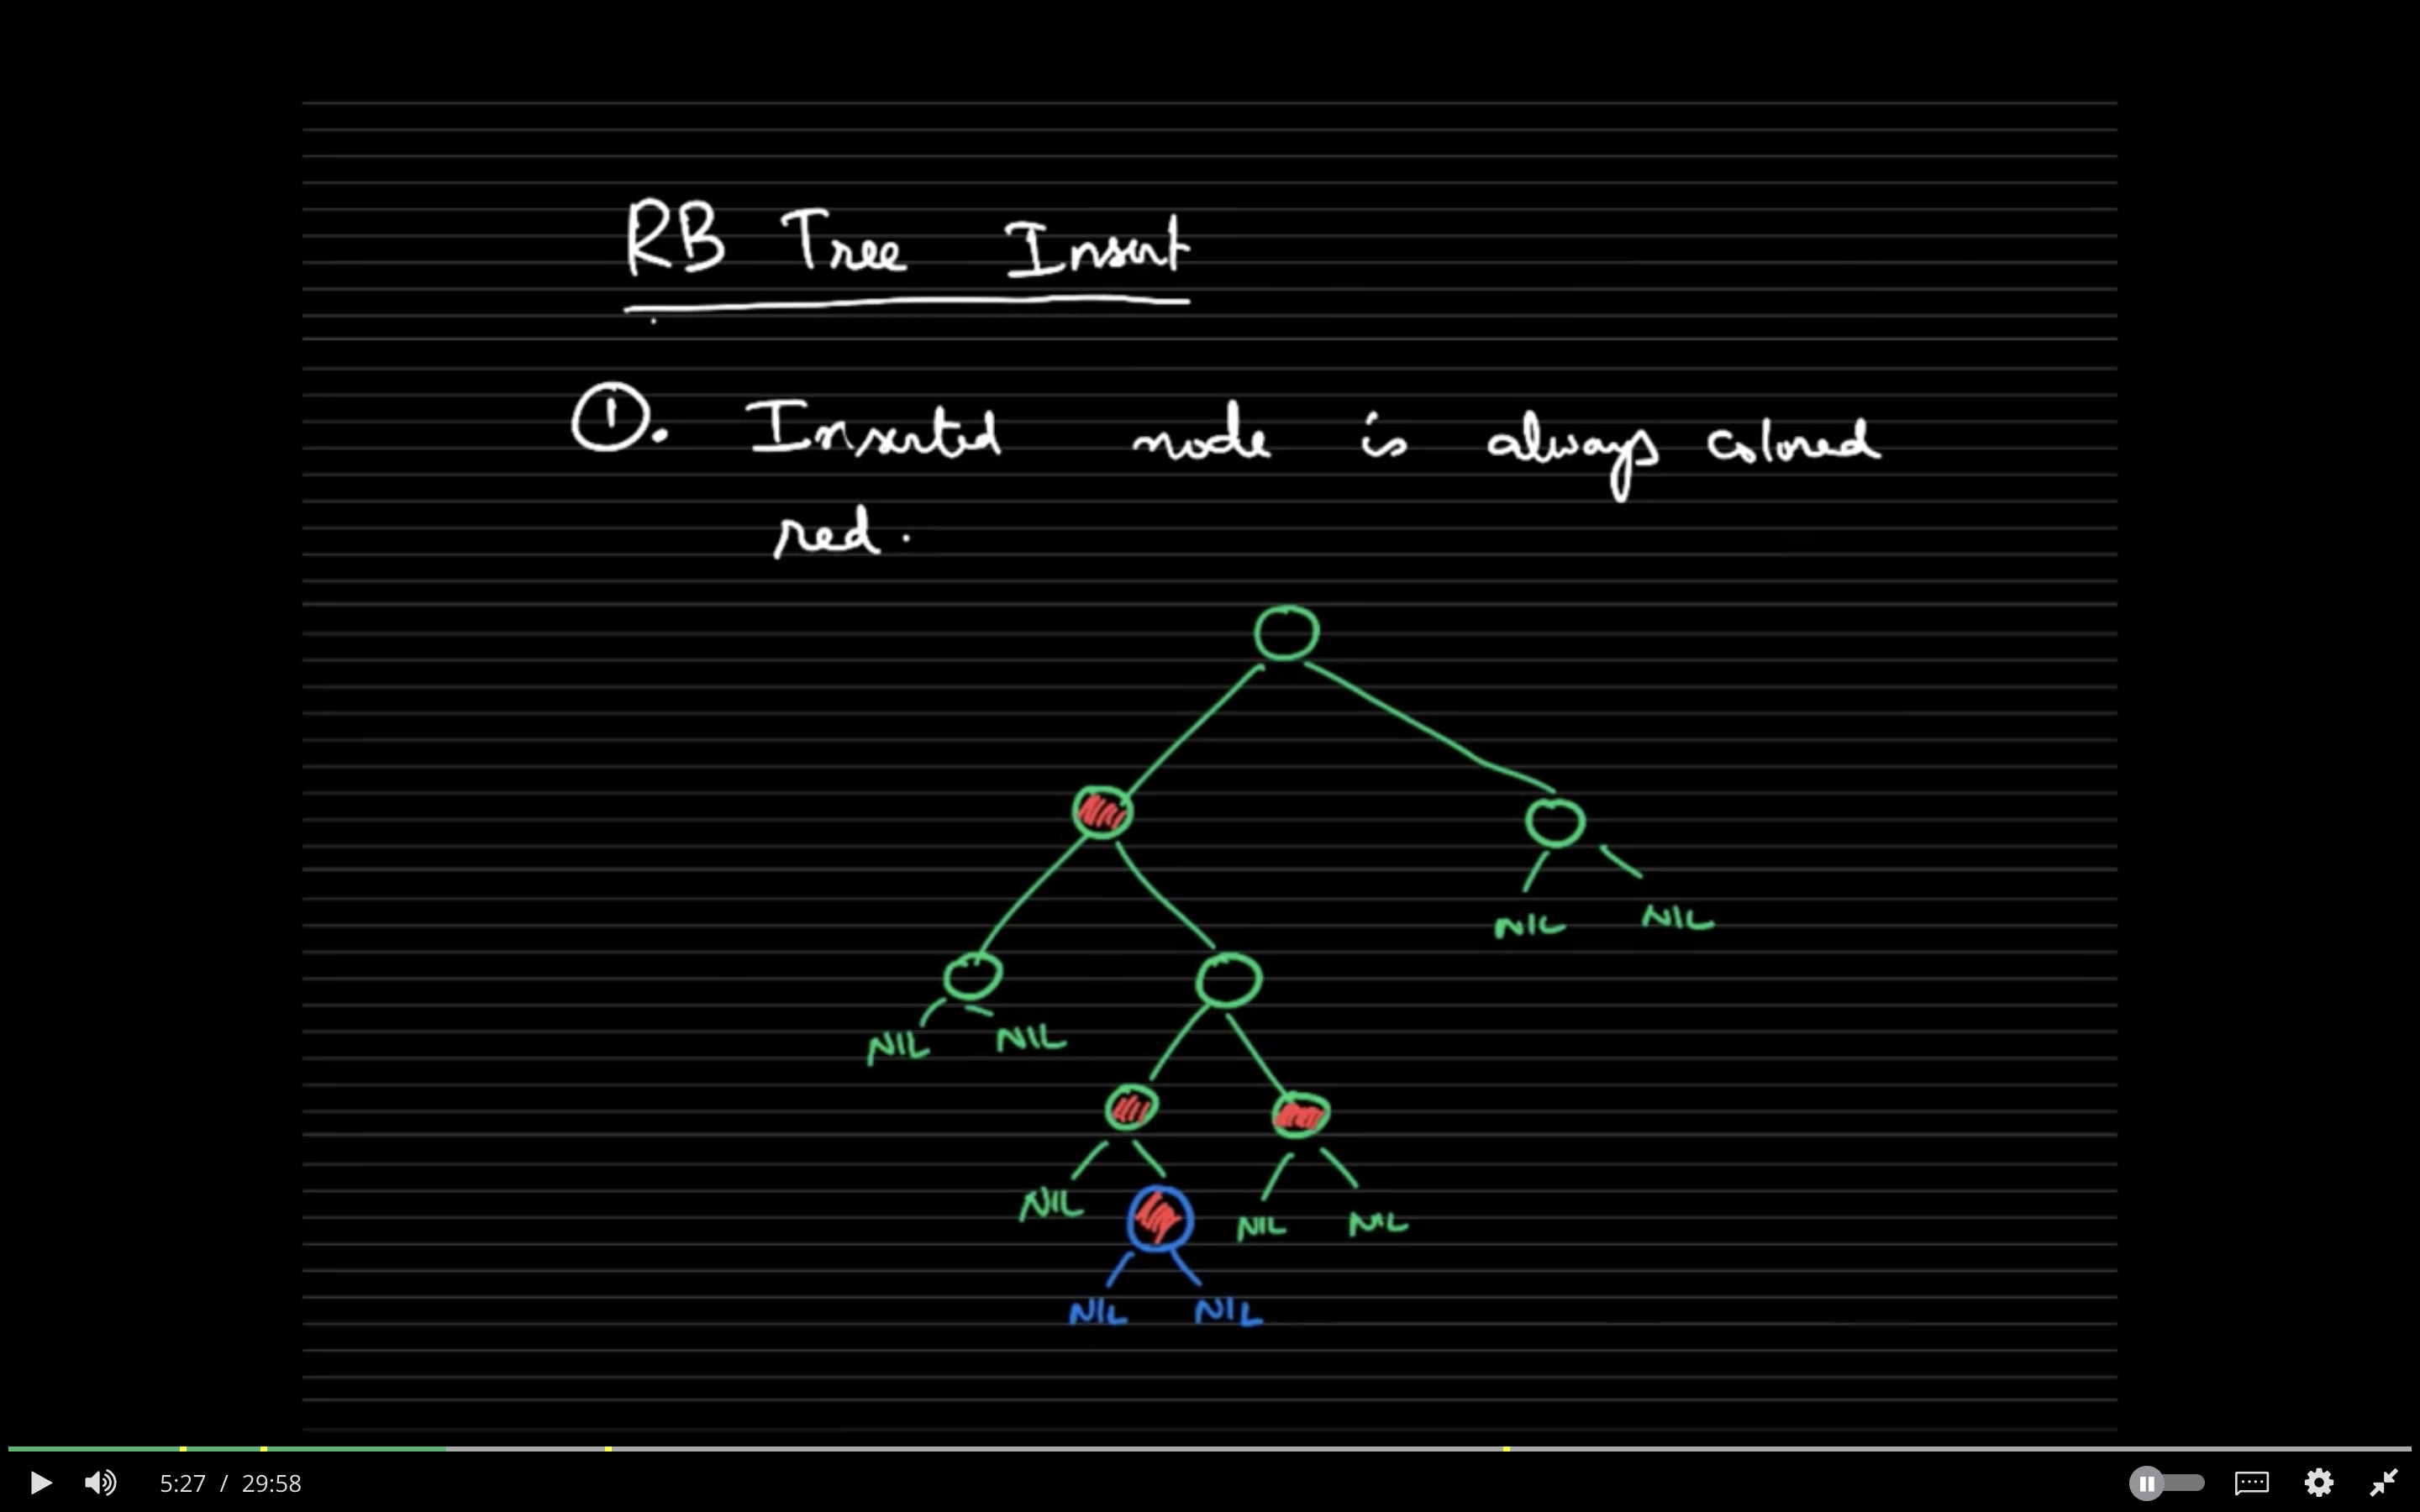 RB Tree Insert
1. Inserted node is always colored
red.
NIL NIL
NIL NIL
NIL NIL NIL
NIL NIL
5:27 / 29:58